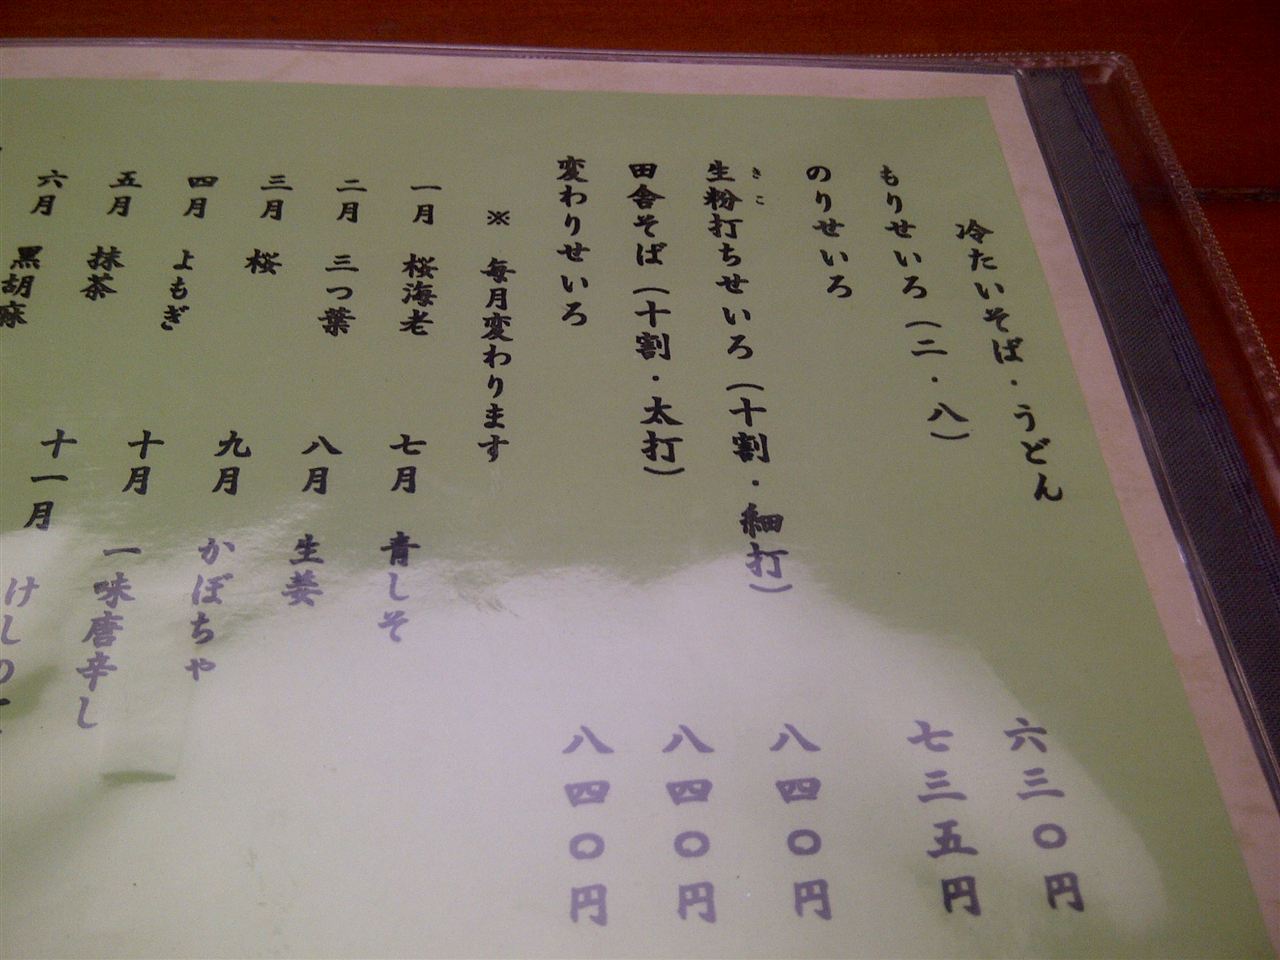 冷たいそば・うどん
もりせいろ（二・八） 六三〇円
のりせいろ 七三五円
生粉打ちせいろ（十割・細打） 八四〇円
きこ
田舎そば（十割・太打） 八四〇円
変わりせいろ 八四〇円
※ 毎月変わります
一月 桜海老
七月 青しそ
二月 三つ葉
八月 生姜
三月 桜
九月 かぼちゃ
四月 よもぎ
十月 一味唐辛し
五月 抹茶
十一月 けしの
六月 黒胡麻